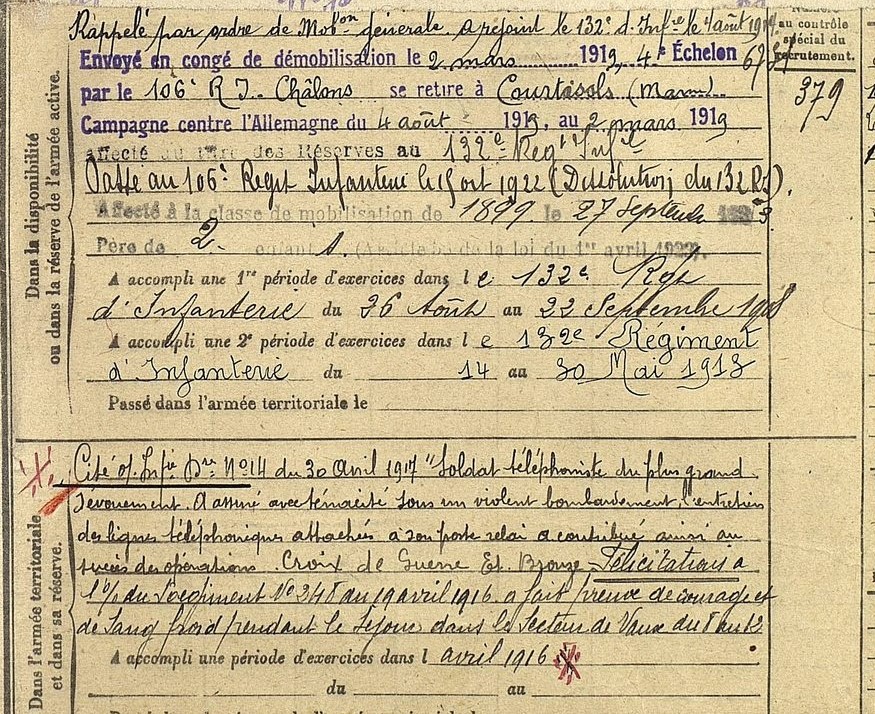 Rappelé par ordre de Mob^on générale. a rejoint le 132e d'Inf^rie le 4 août 191
Envoyé en congé de démobilisation le 2 mars 1919, 4e Échelon
par le 106e R I. Châlons se retire à Courtisols (Marne)
Campagne contre l'Allemagne du 4 août 191 , au 2 mars 1919
Affecté au des Réserves au 132e Reg^t Inf^ie
Passé au 106e Regt Infanterie le 1922 (Dissolution du 132 RI).
Affecté à la classe de mobilisation de 1899 le 27 Septembre
Père de 2 enfants. (Article de la loi du 1er avril 1923).
A accompli une 1re période d'exercices dans le 132e Rgt
d'Infanterie du 26 Août au 22 Septembre 1908
A accompli une 2e période d'exercices dans le 132e Régiment
d'Infanterie du 14 au 30 Mai 1913
Passé dans l'armée territoriale le
Dans la disponibilité
ou dans la réserve de l'armée active.
Numéro
au contrôle
spécial du
recrutement.
379
Cité O. Inf^ie D^re N° 14 du 30 Avril 1917 "Soldat téléphoniste du plus grand
dévouement. A assuré avec ténacité sous un violent bombardement l'entretien
des lignes téléphoniques attachées à son poste relai a contribué ainsi au
succès des opérations. Croix de Guerre Et. Bronze - Félicitations à
l'O/ du Régiment N° 248 du 19 avril 1916. a fait preuve de courage et
de sang froid pendant le séjour dans le secteur de Vaux du 8 au 12
avril 1916
A accompli une période d'exercices dans l
du au
Dans l'armée territoriale
et dans sa réserve.